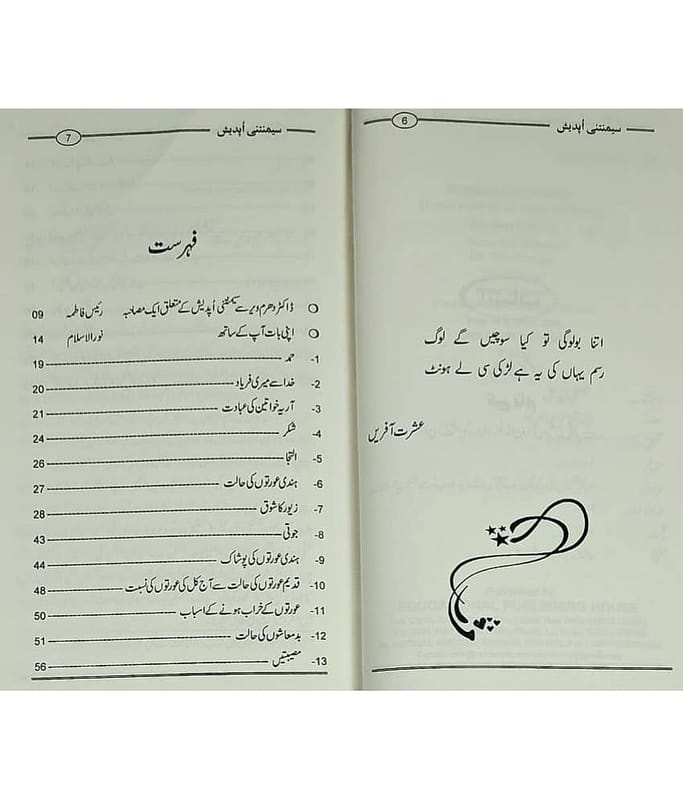 سیمنتنی اُپدیش
6
اتنا بولوگی تو کیا سوچیں گے لوگ
رسم یہاں کی یہ ہے لڑکی سی لے ہونٹ
عشرت آفریں
سیمنتنی اُپدیش
7
فہرست
ڈاکٹر دھرم ویر سے سیمنتنی اُپدیش کے متعلق ایک مصاحبہ رئیس فاطمہ 09
اپنی بات آپ کے ساتھ نورالاسلام 14
1- حمد 19
2- خدا سے میری فریاد 20
3- آریہ خواتین کی عبادت 21
4- شکر 24
5- التجا 26
6- ہندی عورتوں کی حالت 27
7- زیور کا شوق 28
8- جوتی 43
9- ہندی عورتوں کی پوشاک 44
10- قدیم عورتوں کی حالت سے آج کل کی عورتوں کی نسبت 48
11- عورتوں کے خراب ہونے کے اسباب 50
12- بدمعاشوں کی حالت 51
13- مصیبتیں 56